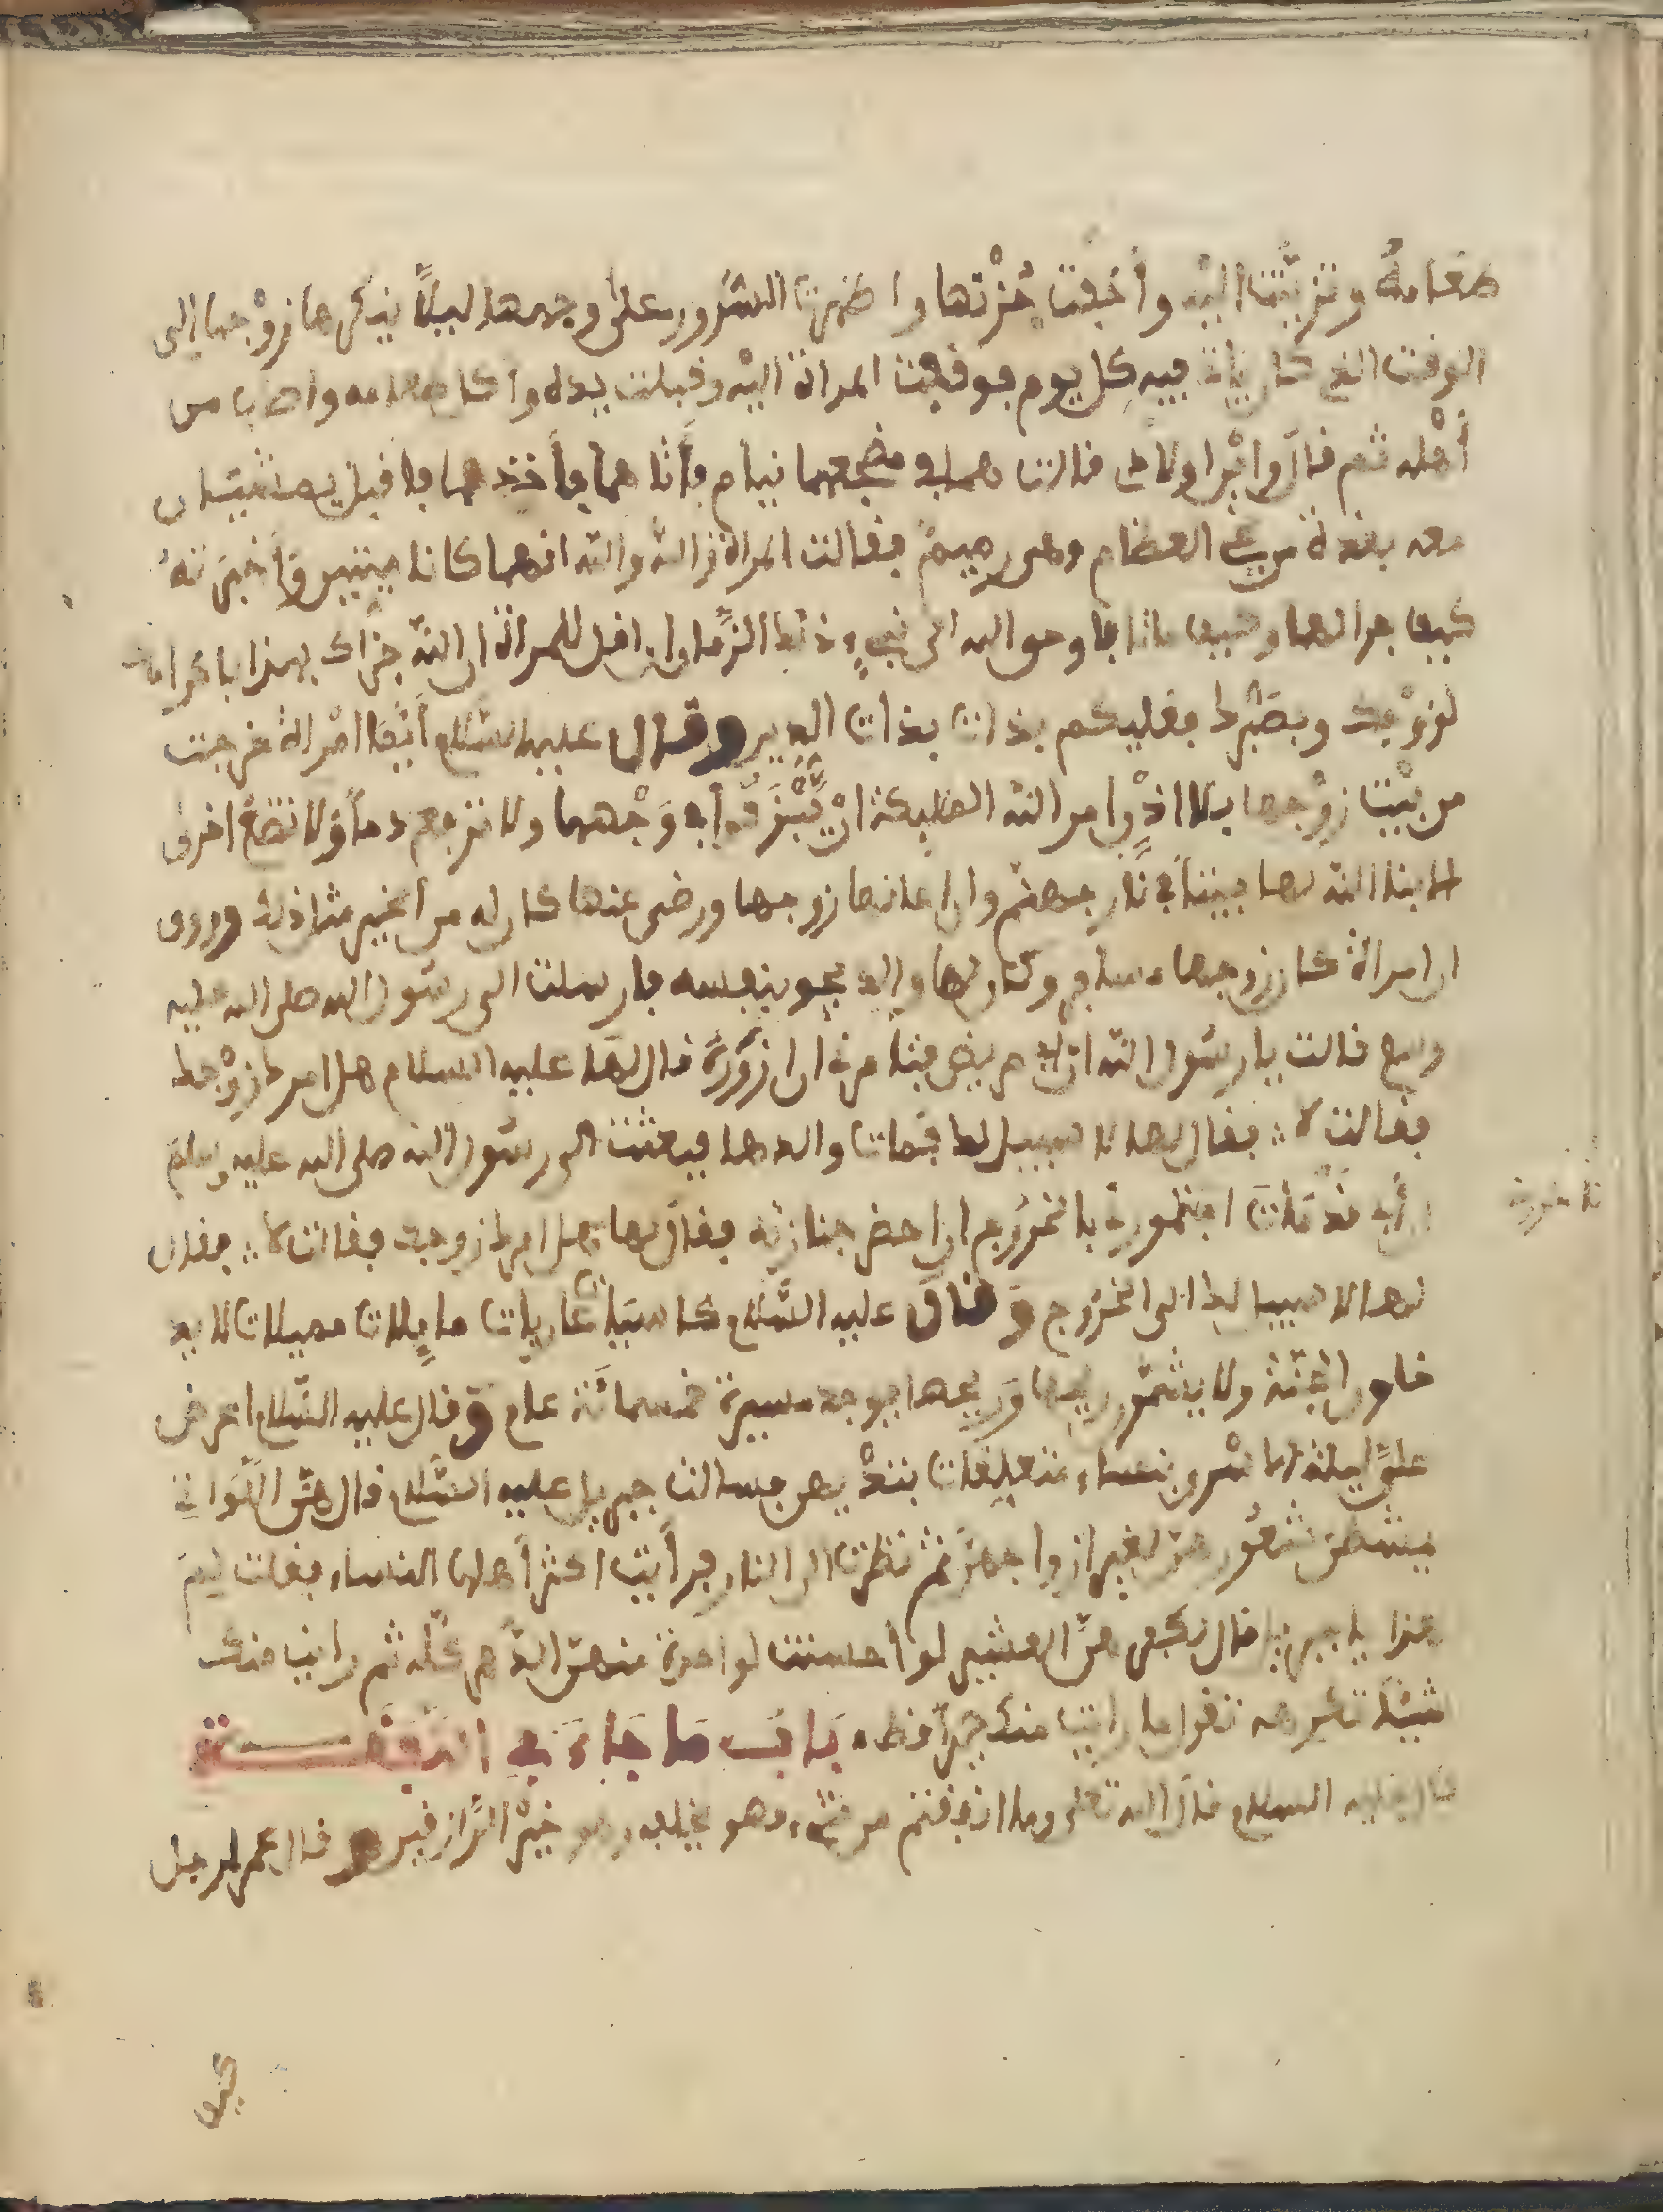 طعامه وتزينت اليه وأخفت حزنها واظهرت السرور على وجهها ليلا ينكرها زوجها إلى
الوقت الذي كان يأت فيه كل يوم فوقفت المرأة اليه وقبلت يده وأكل طعامه واصاب من
أهله ثم قال واين اولادي قالت هما في مضجعهما نيام فأتاهما فأخذهما فاقبل يمشيان
معه بقدرة من يحي العظام وهي رميم فقالت المرأة والله انهما كانا ميتين وأخبرته
كيف جرا لهما وكيف ماتا فاوحى الله الى نبيء ذلك الزمان ان اقل للمرأة ان الله جزاك بهذا باكرامك
لزوجك وبصبرك فعليكم بذات بذات الدين وقال عليه السلام أيما امرأة خرجت
من بيت زوجها بلا اذن امر الله الملايكة ان يبزقوا في وجهها ولا ترفع قدما ولا تضع اخرى
الا بنا الله لها بيتا في نار جهنم وان اعانها زوجها ورضى عنها كان له من الخير مثل ذلك وروى
ان امرأة كان زوجها مسافر وكان لها والد يجود بنفسه فارسلت الى رسول الله صلى الله عليه
وسلم قالت يا رسول الله ان ابي مريض فتامرني ان ازوره قال لها عليه السلام هل امرك زوجك
فقالت لا فقال لها لا سبيل لك فمات والدها فبعثت الى رسول الله صلى الله عليه وسلم
ان أبي قد مات افتامرني بالخروج ان احضر جنازته فقال لها هل امرك زوجك فقالت لا فقال
لها لا سبيل لك الى الخروج وقال عليه السلام كاسيات عاريات مايلات مميلات لا يد
خلون الجنة ولا يشمون ريحها وريحها يوجد مسيرة خمسمائة عام وقال عليه السلام اعرض
علي ليلة الاسرى نساء متعلقات بثديهن فسالت جبريل عليه السلام قال هن اللواتي
يمشطن شعورهن لغير ازواجهن ثم نظرت الى النار فرأيت اكثر أهلها النساء فقلت لم
هذا يا جبريل قال يكفرن العشير لو أحسنت لواحدة منهن الدهر كله ثم رات منك
شيئا تكرهه تقول ما رايت منك خيرا قط باب ما جاء في النفقة
قال عليه السلام قال الله تعلى وما انفقتم من شيء فهو يخلفه وهو خير الرازقين وقال عمر لرجل